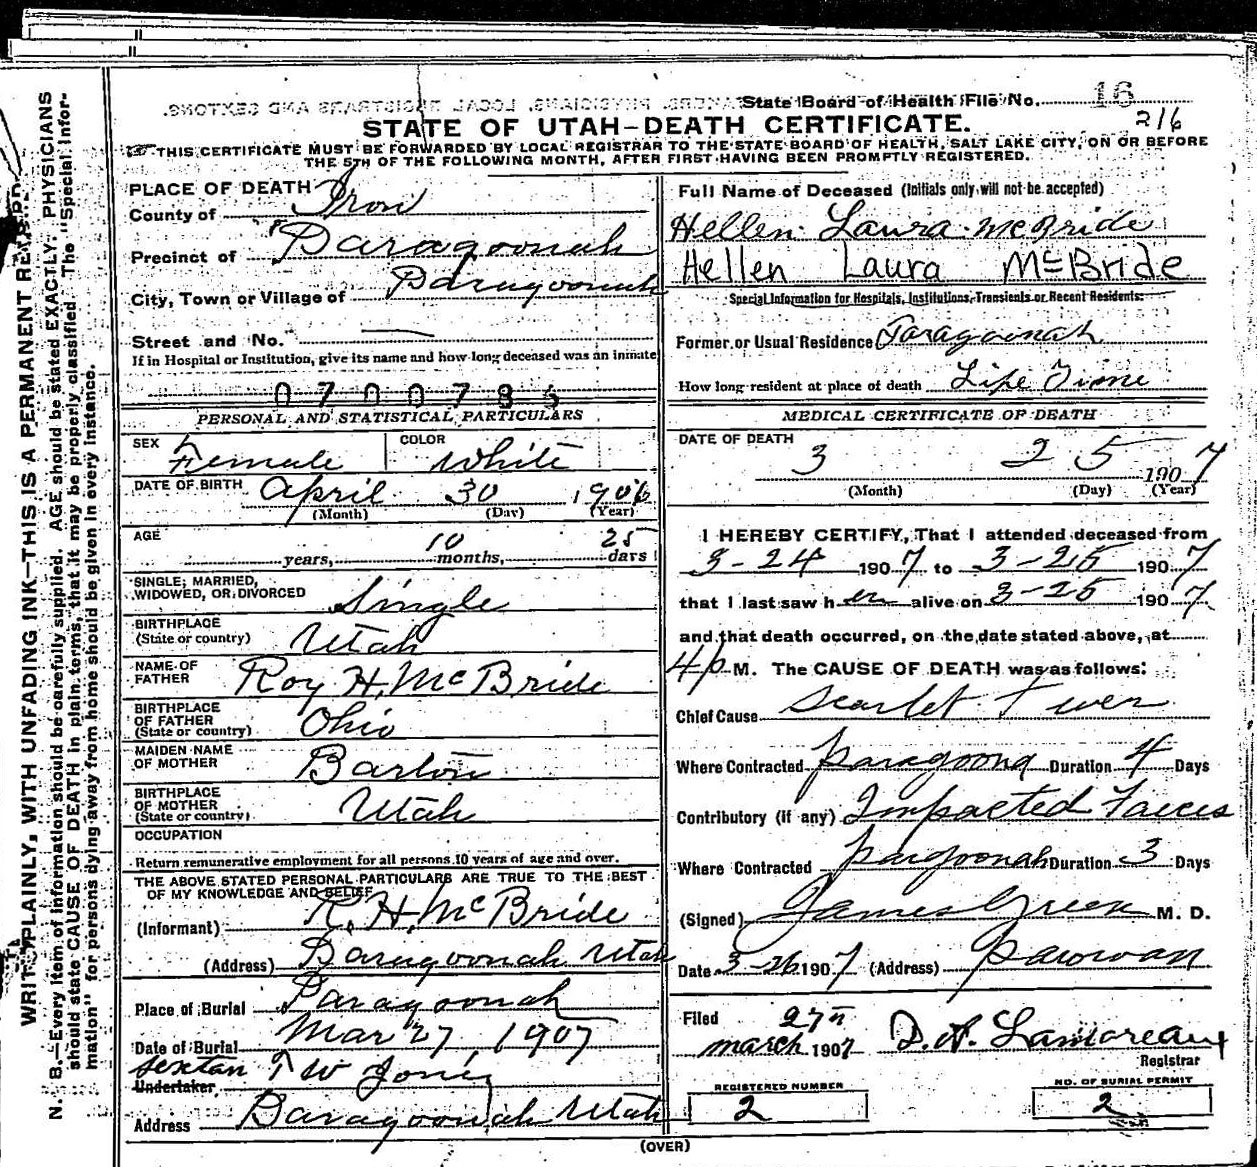 State Board of Health File No. 16
216
STATE OF UTAH—DEATH CERTIFICATE.
THIS CERTIFICATE MUST BE FORWARDED BY LOCAL REGISTRAR TO THE STATE BOARD OF HEALTH, SALT LAKE CITY, ON OR BEFORE
THE 5TH OF THE FOLLOWING MONTH, AFTER FIRST HAVING BEEN PROMPTLY REGISTERED.
WRITE PLAINLY, WITH UNFADING INK—THIS IS A PERMANENT RECORD
N. B.—Every item of information should be carefully supplied. AGE should be stated EXACTLY. PHYSICIANS
should state CAUSE OF DEATH in plain terms, that it may be properly classified. The "Special Infor-
mation" for persons dying away from home should be given in every instance.
PLACE OF DEATH
County of Iron
Precinct of Paragoonah
City, Town or Village of Paragoonah
Street and No.
If in Hospital or Institution, give its name and how long deceased was an inmate
0700785
PERSONAL AND STATISTICAL PARTICULARS
SEX Female COLOR White
DATE OF BIRTH April 30 1906
(Month) (Day) (Year)
AGE
years, 10 months, 25 days
SINGLE, MARRIED,
WIDOWED, OR DIVORCED Single
BIRTHPLACE
(State or country) Utah
NAME OF
FATHER Roy H. McBride
BIRTHPLACE
OF FATHER
(State or country) Ohio
MAIDEN NAME
OF MOTHER Barton
BIRTHPLACE
OF MOTHER
(State or country) Utah
OCCUPATION
Return remunerative employment for all persons 10 years of age and over.
THE ABOVE STATED PERSONAL PARTICULARS ARE TRUE TO THE BEST
OF MY KNOWLEDGE AND BELIEF
(Informant) R. H. McBride
(Address) Paragoonah Utah
Place of Burial Paragoonah
Date of Burial Mar 27, 1907
Sextan T W Jones
Undertaker
Address Paragoonah Utah
Full Name of Deceased (Initials only will not be accepted)
Hellen Laura McBride
Hellen Laura McBride
Special Information for Hospitals, Institutions, Transients or Recent Residents:
Former or Usual Residence Paragoonah
How long resident at place of death Life Time
MEDICAL CERTIFICATE OF DEATH
DATE OF DEATH
3 25 1907
(Month) (Day) (Year)
I HEREBY CERTIFY, That I attended deceased from
3-24 1907 to 3-25 1907
that I last saw her alive on 3-25 1907
and that death occurred, on the date stated above, at
4 p M. The CAUSE OF DEATH was as follows:
Chief Cause Scarlet Fever
Where Contracted Paragoona Duration 4 Days
Contributory (if any) Impacted Faeces
Where Contracted Pargoonah Duration 3 Days
(Signed) James Green M. D.
Date 3-26 1907 (Address) Parowan
Filed 27th
March 1907 D. A. Lamoreaux
Registrar
REGISTERED NUMBER
2
NO. OF BURIAL PERMIT
2
(OVER)